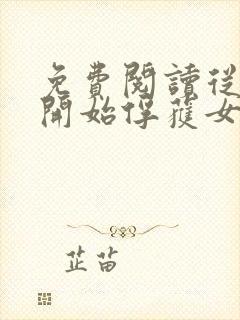 免費閱讀從
開始俘獲女
芷苗